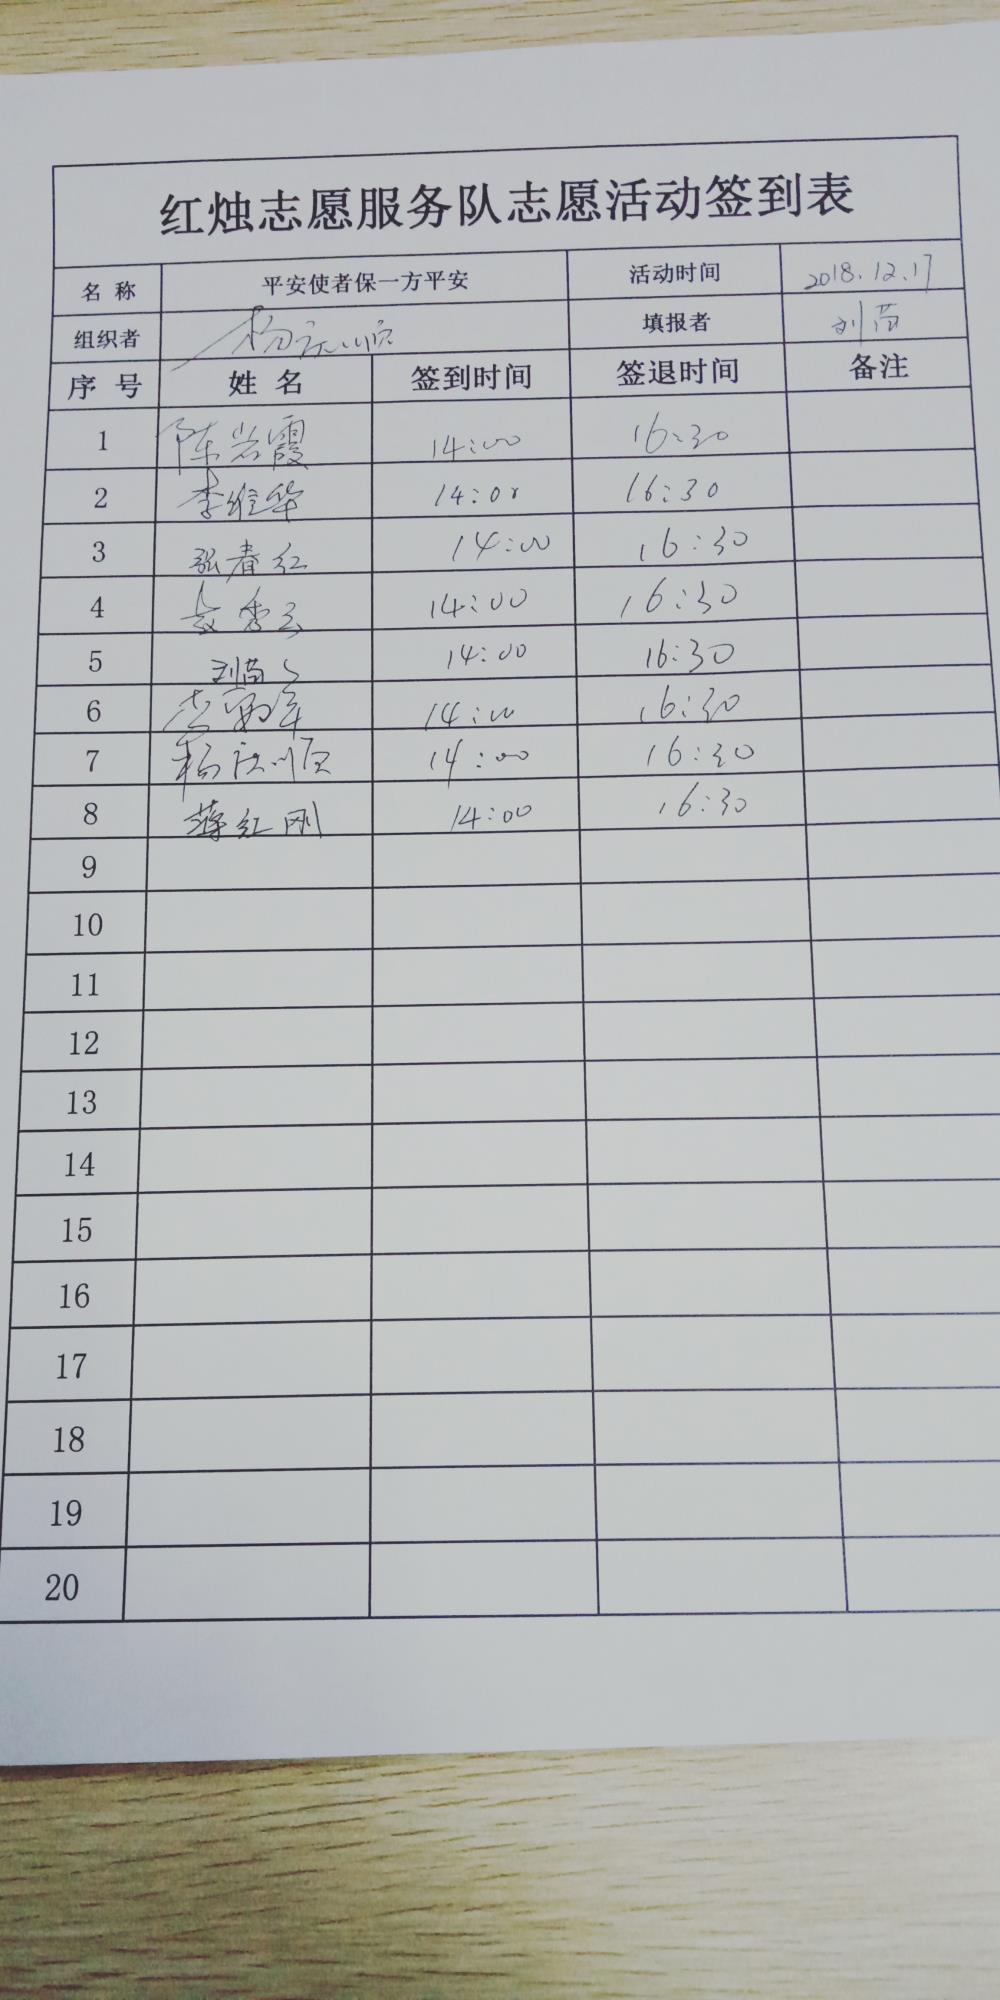 红烛志愿服务队志愿活动签到表
名 称 平安使者保一方平安 活动时间 2018.12.17
组织者 杨庆顺 填报者 刘苗
序 号 姓 名 签到时间 签退时间 备注
1 陈岩霞 14:00 16:30
2 李维华 14:00 16:30
3 张春红 14:00 16:30
4 秀云 14:00 16:30
5 刘苗 14:00 16:30
6 14:00 16:30
7 杨庆顺 14:00 16:30
8 蒋红刚 14:00 16:30
9
10
11
12
13
14
15
16
17
18
19
20